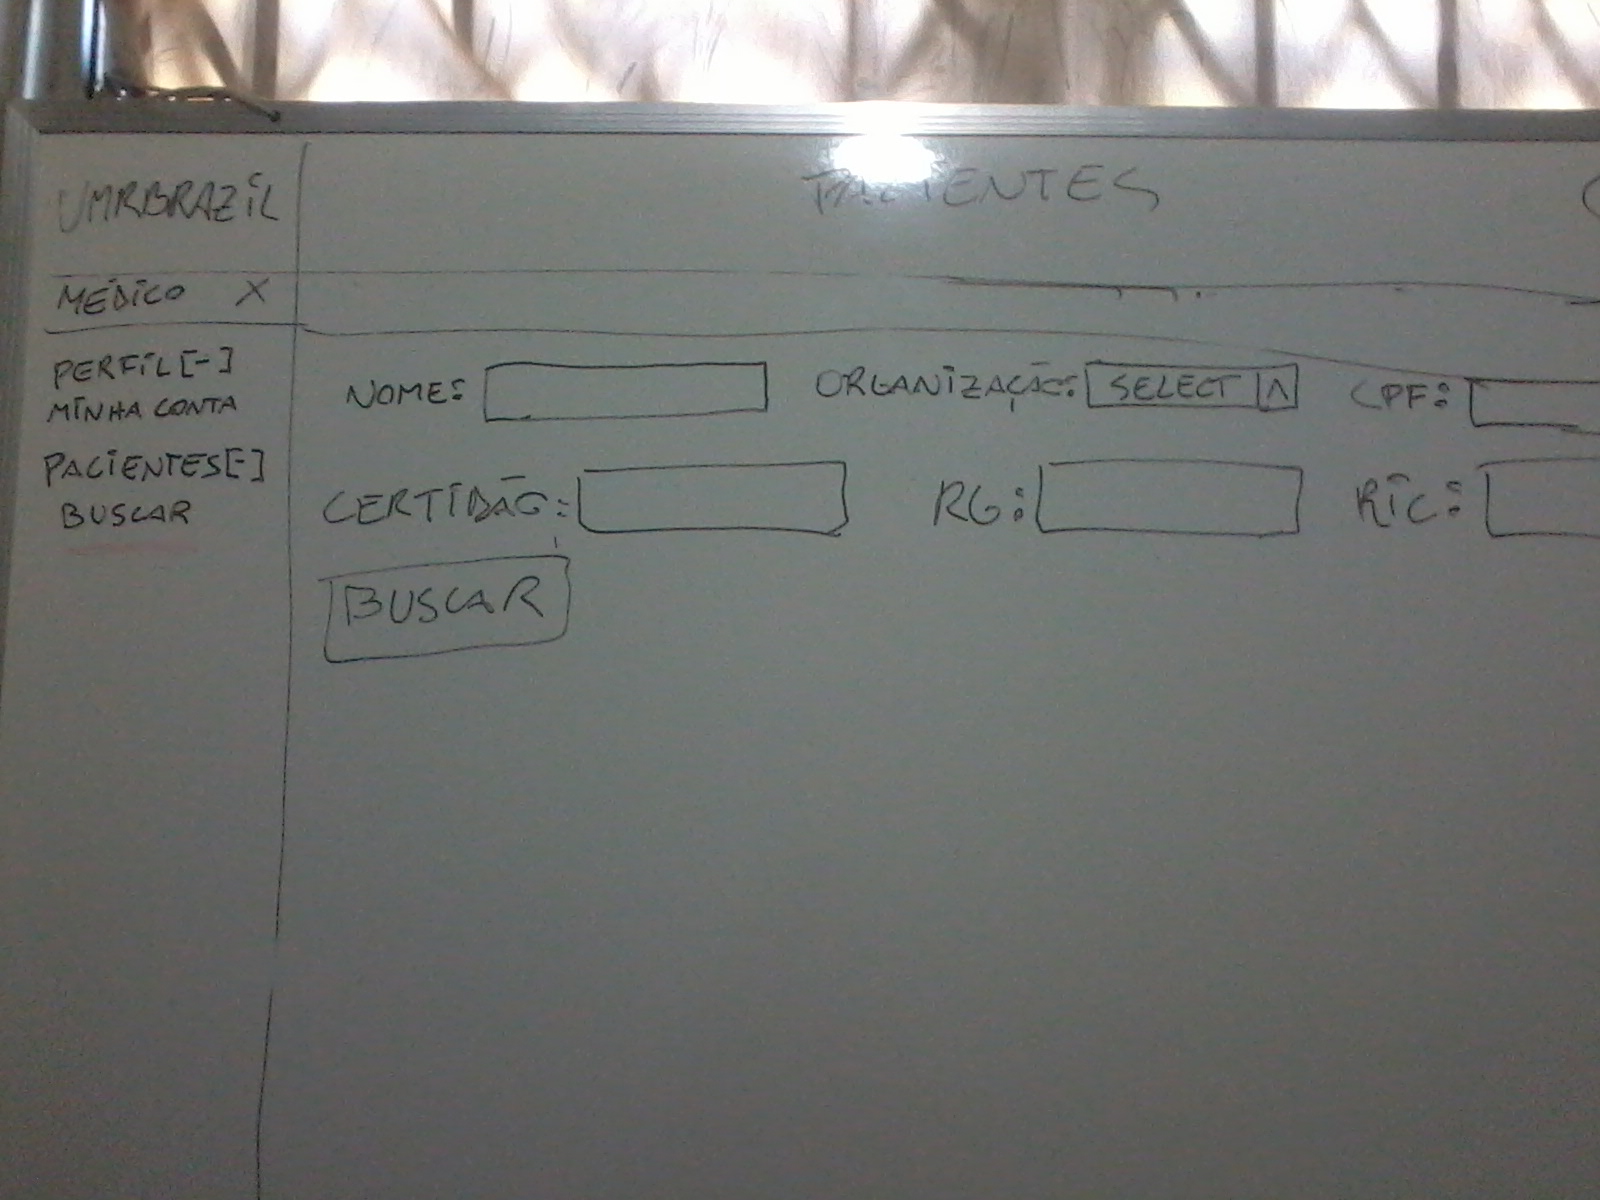 UMRBRAZIL
PACIENTES
MÉDICO X
PERFIL[-]
MINHA CONTA
PACIENTES[-]
BUSCAR
NOME:
ORGANIZAÇÃO: SELECT
CPF:
CERTIDÃO:
RG:
RIC:
BUSCAR